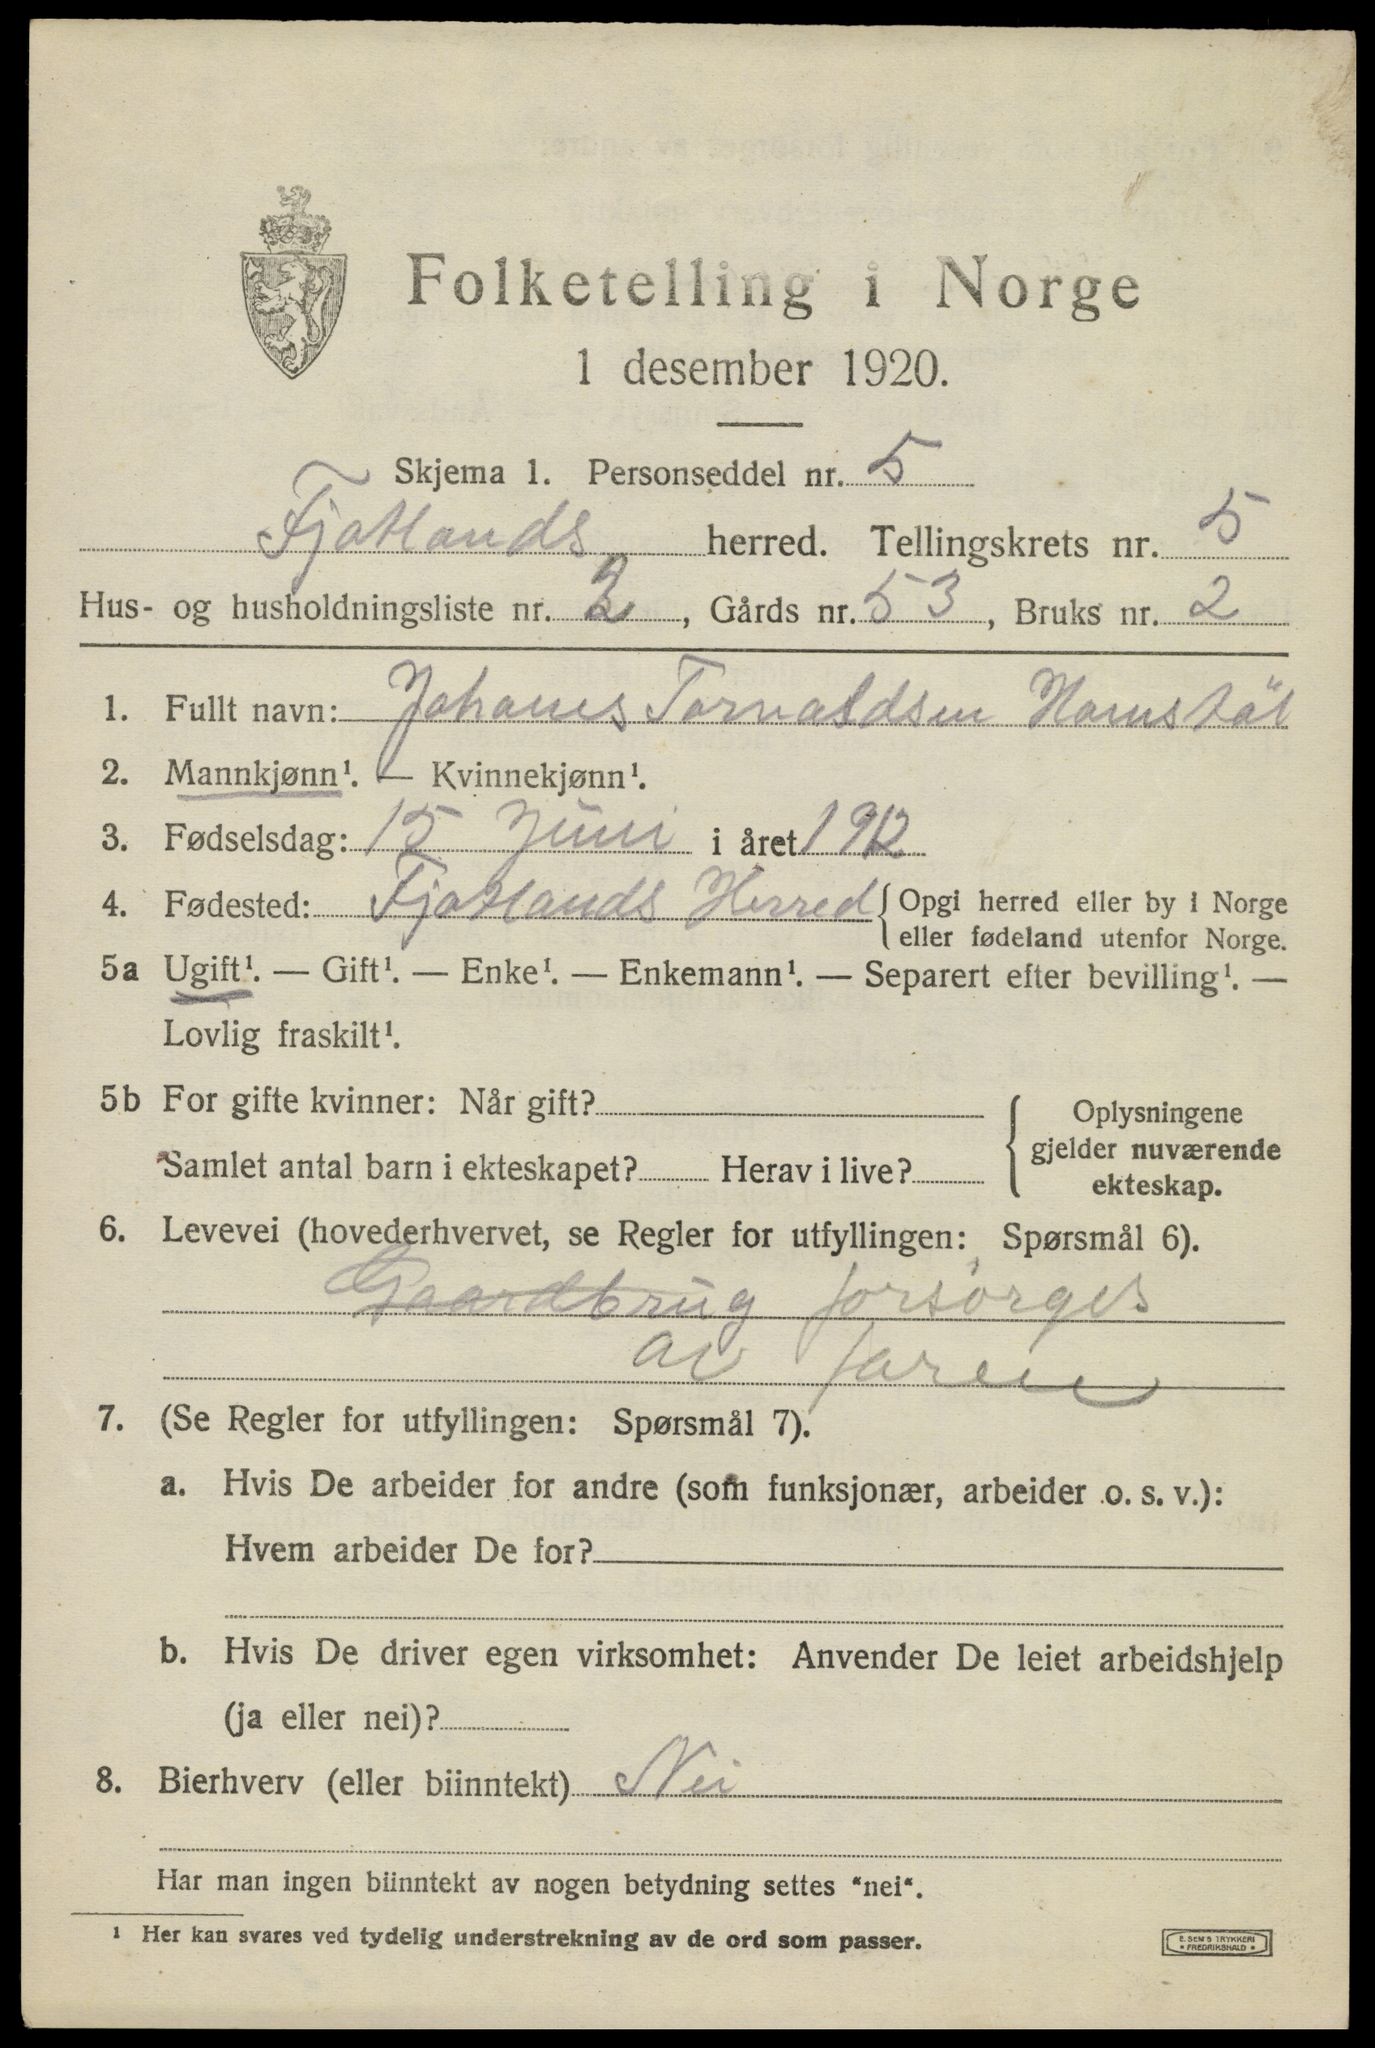 Folketelling i Norge
1 desember 1920.
Skjema 1. Personseddel nr. 5
Fjotlands herred. Tellingskrets nr. 5
Hus- og husholdningsliste nr. 2, Gårds nr. 53, Bruks nr. 2
1. Fullt navn: Johanes Tarvaldsen Hamstöl
2. Mannkjønn¹. — Kvinnekjønn¹.
3. Fødselsdag: 15 Juni i året 1912
4. Fødested: Fjotlands Herred { Opgi herred eller by i Norge
eller fødeland utenfor Norge.
5a Ugift¹. — Gift¹. — Enke¹. — Enkemann¹. — Separert efter bevilling¹. —
Lovlig fraskilt¹.
5b For gifte kvinner: Når gift?
Samlet antal barn i ekteskapet? Herav i live?
{ Oplysningene
gjelder nuværende
ekteskap.
6. Levevei (hovederhvervet, se Regler for utfyllingen: Spørsmål 6).
Gaardbrug forsörges
av faren
7. (Se Regler for utfyllingen: Spørsmål 7).
a. Hvis De arbeider for andre (som funksjonær, arbeider o. s. v.):
Hvem arbeider De for?
b. Hvis De driver egen virksomhet: Anvender De leiet arbeidshjelp
(ja eller nei)?
8. Bierhverv (eller biinntekt) Nei
Har man ingen biinntekt av nogen betydning settes "nei".
¹ Her kan svares ved tydelig understrekning av de ord som passer.
E. SEM'S TRYKKERI
• FREDRIKSHALD •